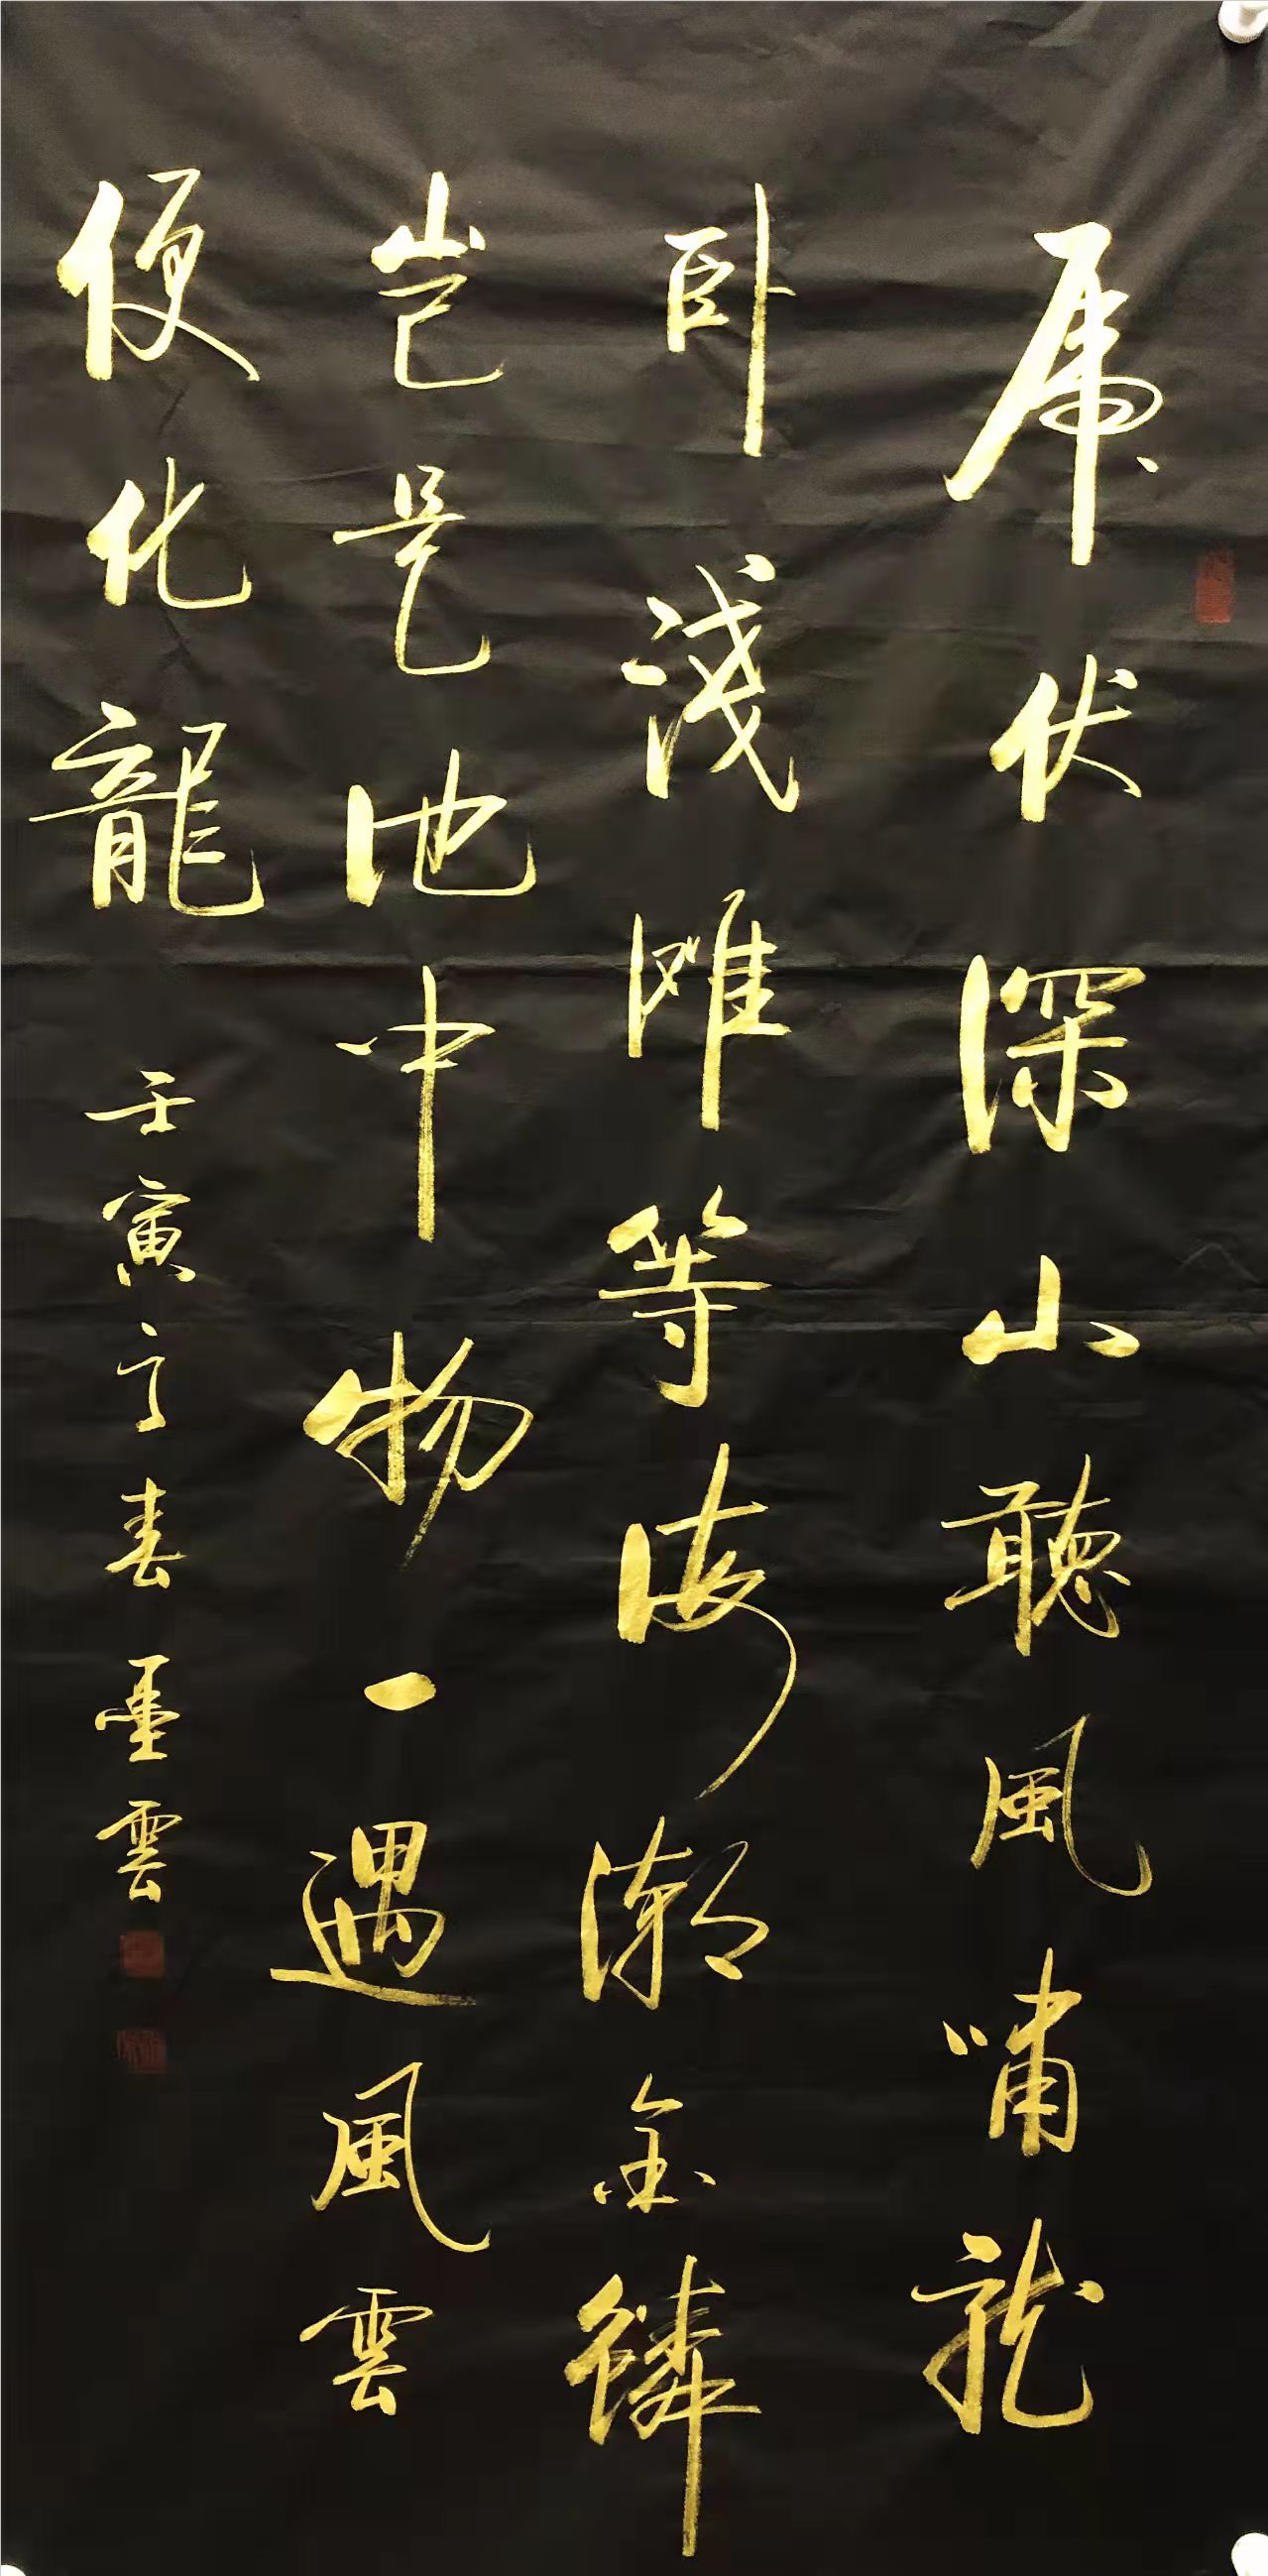 虎伏深山聽風嘯龍
卧淺滩等海潮金鱗
豈是池中物一遇風雲
便化龍 壬寅春墨雲